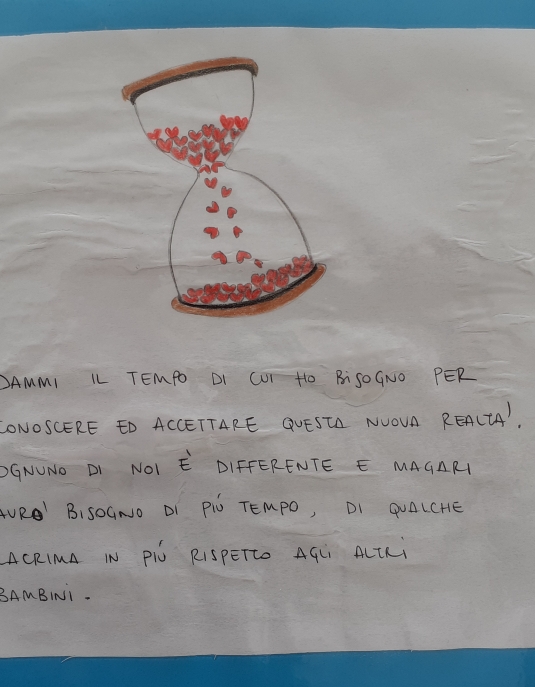 DAMMI IL TEMPO DI CUI HO BISOGNO PER
CONOSCERE ED ACCETTARE QUESTA NUOVA REALTA'.
OGNUNO DI NOI È DIFFERENTE E MAGARI
AVRO' BISOGNO DI PIÚ TEMPO, DI QUALCHE
LACRIMA IN PIÚ RISPETTO AGLI ALTRI
BAMBINI.